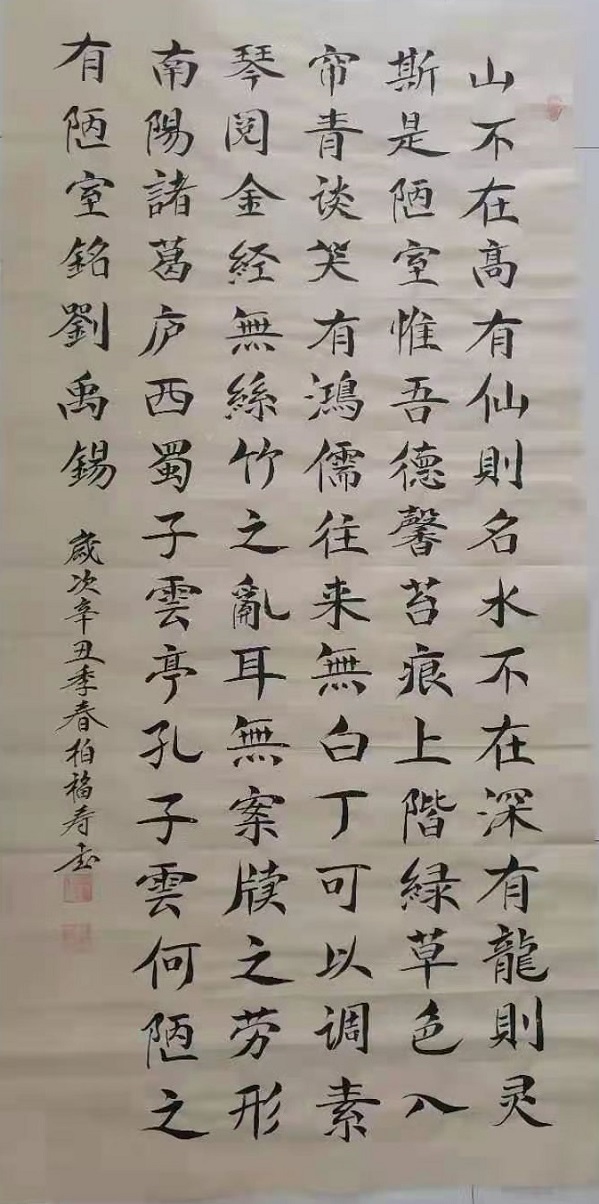 山不在高有仙則名水不在深有龍則灵
斯是陋室惟吾德馨苔痕上階緑草色入
帘青谈笑有鴻儒往来無白丁可以调素
琴阅金经無絲竹之亂耳無案牍之劳形
南陽諸葛庐西蜀子雲亭孔子雲何陋之
有陋室銘劉禹錫
歲次辛丑季春柏福寿书